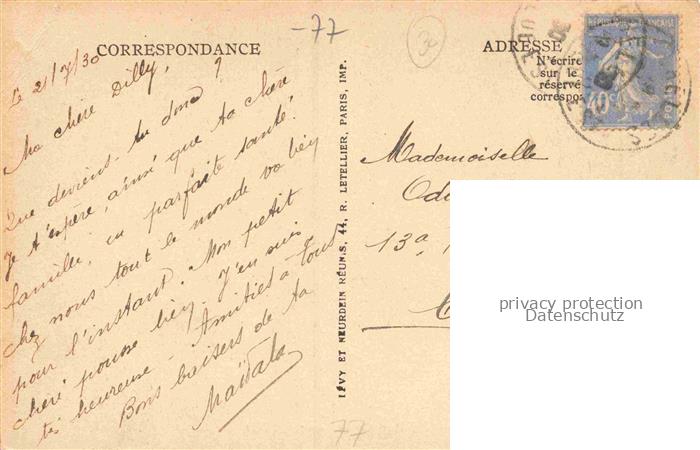 -77
CORRESPONDANCE
ADRESSE
N'écrire
sur le
réservé
correspon
RÉPUBLIQUE FRANÇAISE
40
Le 21/7/30
Ma chère Dilly,
Que deviens-tu donc ?
Je t'espère, ainsi que ta chère
famille, en parfaite santé.
Chez nous tout le monde va bien
pour l'instant. Mon petit
chéri pousse bien. J'en suis
très heureuse - Amitiés à tous
Bons baisers de ta
LÉVY ET NEURDEIN RÉUNIS, 44, R. LETELLIER, PARIS, IMP.
Mademoiselle
13a
77
privacy protection
Datenschutz